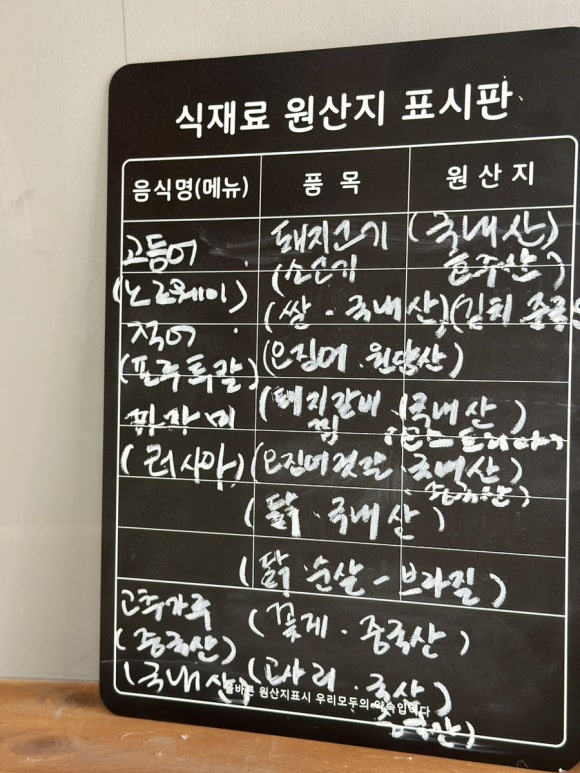 식재료 원산지 표시판
음식명(메뉴) 품 목 원 산 지
고등어 돼지고기 (국내산)
(소고기 호주산)
(노르웨이)
(쌀 · 국내산)(김치 중국
적어
(오징어 · 원양산)
(포루투갈)
(돼지갈비 (국내산)
찜
(러시아) (오징어젓갈 · 국내산)
중국산)
(닭 · 국내산)
(닭 · 순살 - 브라질)
고추가루 (꽃게 · 중국산)
(중국산)
(국내산) (고사리 · 국산)
올바른 원산지표시 우리모두의 약속입니다
중국산)